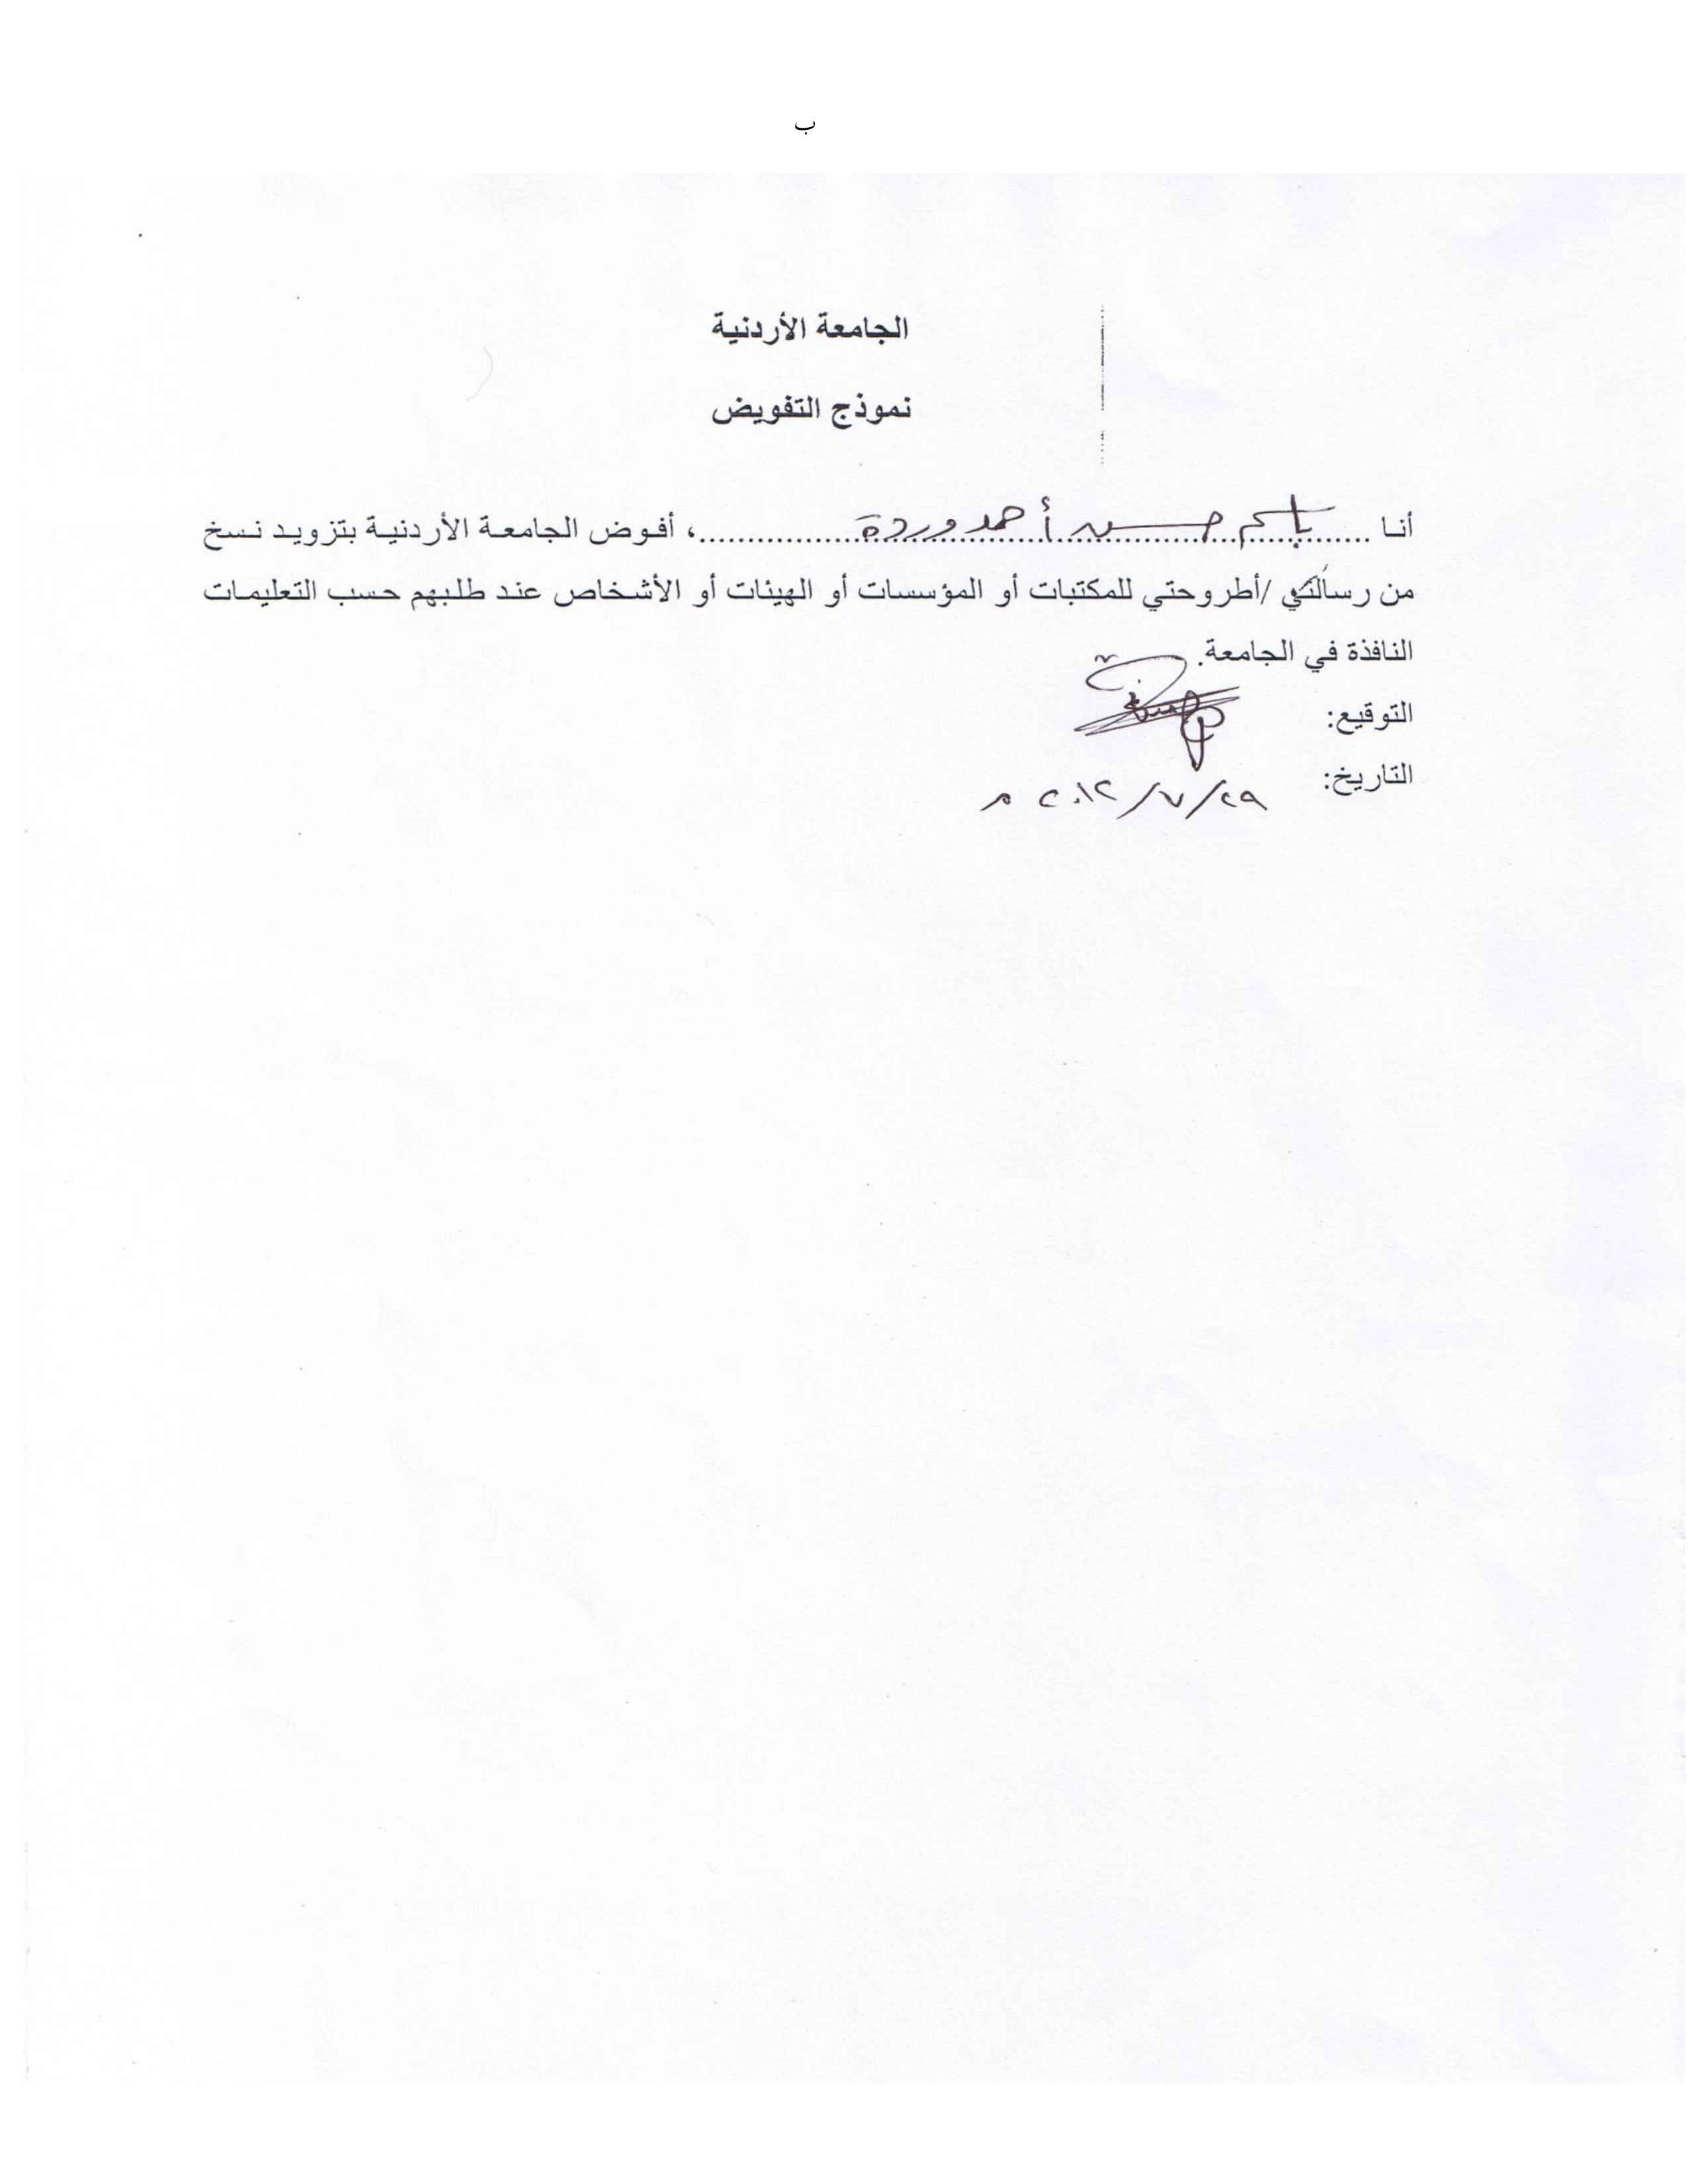 ب
الجامعة الأردنية
نموذج التفويض
أنا باسم حسن أحمد وردة، أفوض الجامعة الأردنية بتزويد نسخ
من رسالتي /أطروحتي للمكتبات أو المؤسسات أو الهيئات أو الأشخاص عند طلبهم حسب التعليمات
النافذة في الجامعة.
التوقيع:
التاريخ: ٢٩/٧/٢٠١٢ م